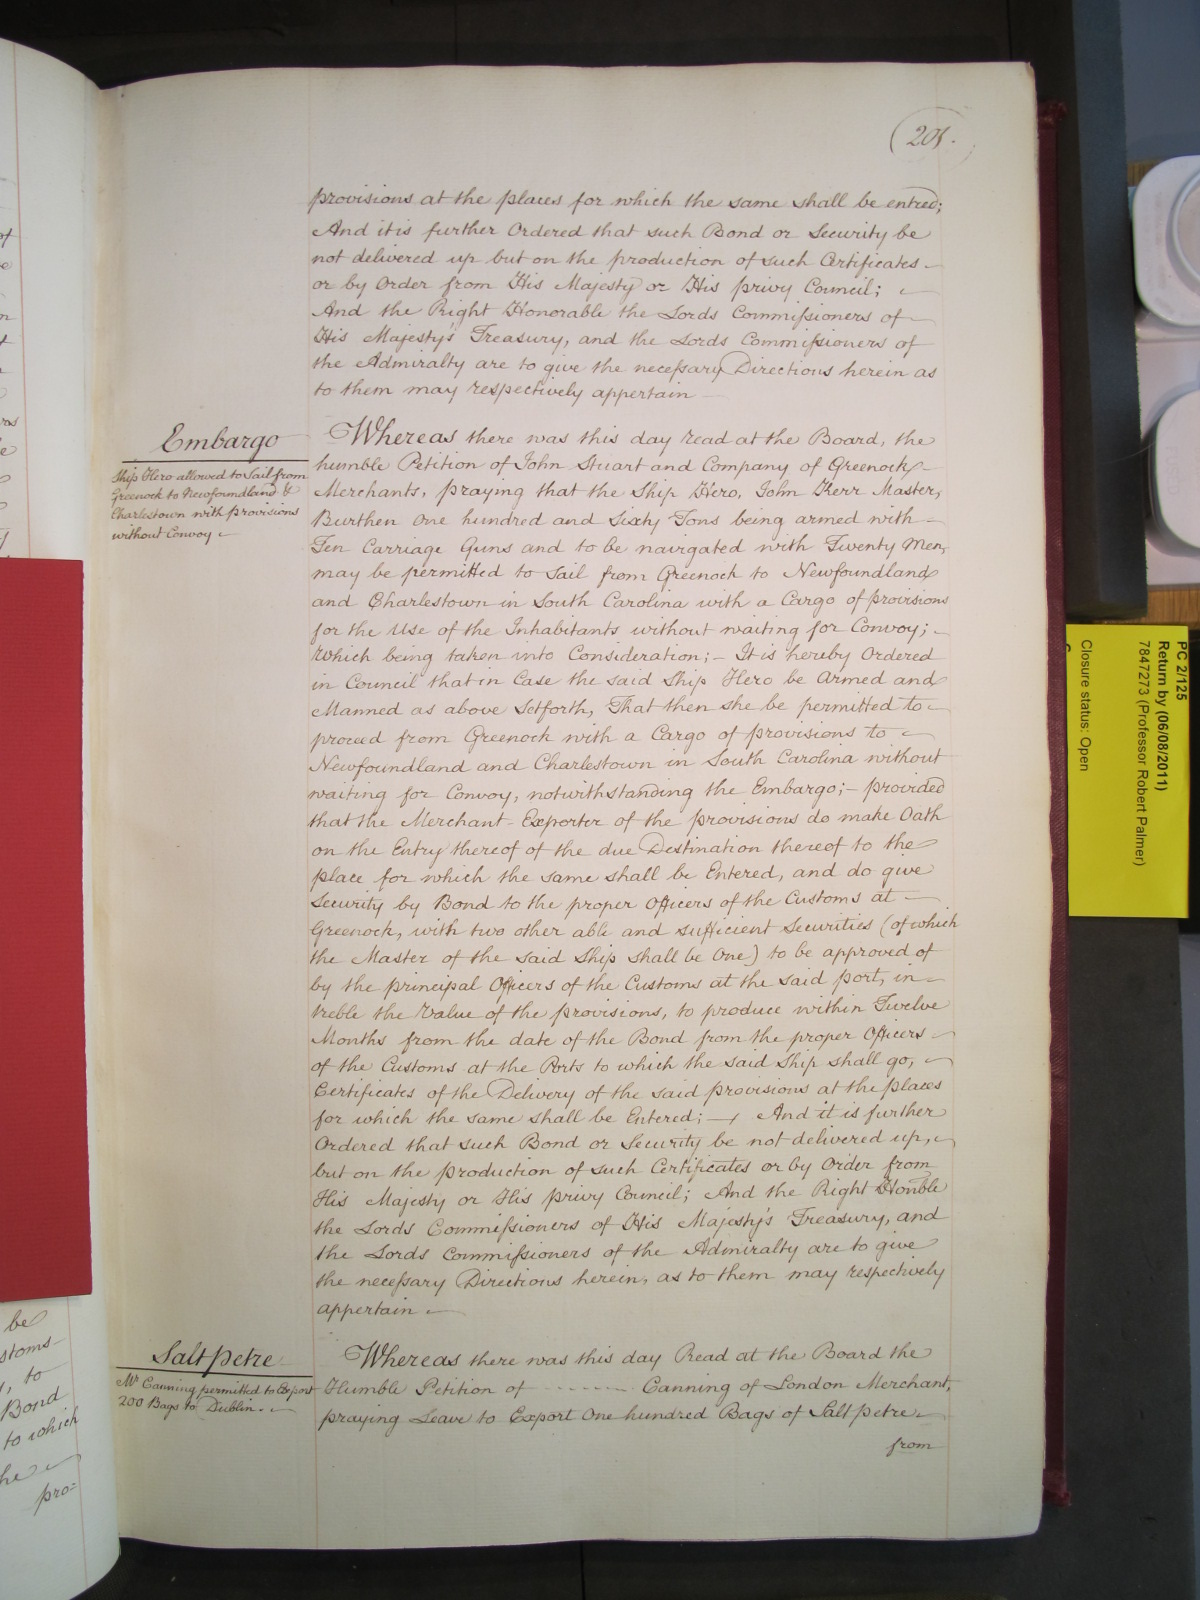 201.
provisions at the places for which the same shall be entred;
And it is further Ordered that such Bond or Security be
not delivered up but on the production of such Certificates
or by Order from His Majesty or His privy Council;
And the Right Honorable the Lords Commissioners of
His Majesty's Treasury, and the Lords Commissioners of
the Admiralty are to give the necessary Directions herein as
to them may respectively appertain
Embargo
Ship Hero allowed to Sail from
Greenock to Newfoundland &
Charlestown with provisions
without Convoy
Whereas there was this day read at the Board, the
humble Petition of John Stuart and Company of Greenock
Merchants, praying that the Ship Hero, John Kerr Master,
Burthen One hundred and Sixty Tons being armed with
Ten Carriage Guns and to be navigated with Twenty Men,
may be permitted to Sail from Greenock to Newfoundland
and Charlestown in South Carolina with a Cargo of provisions
for the Use of the Inhabitants without waiting for Convoy;
Which being taken into Consideration; It is hereby Ordered
in Council that in Case the said Ship Hero be Armed and
Manned as above Setforth, That then she be permitted to
proceed from Greenock with a Cargo of provisions to
Newfoundland and Charlestown in South Carolina without
waiting for Convoy, notwithstanding the Embargo; provided
that the Merchant Exporter of the provisions do make Oath
on the Entry thereof of the due Destination thereof to the
place for which the same shall be Entered, and do give
Security by Bond to the proper Officers of the Customs at
Greenock, with two other able and sufficient Securities (of which
the Master of the said Ship shall be One) to be approved of
by the principal Officers of the Customs at the said port, in
treble the Value of the provisions, to produce within Twelve
Months from the date of the Bond from the proper Officers
of the Customs at the Ports to which the said Ship shall go,
Certificates of the Delivery of the said provisions at the places
for which the same shall be Entered; And it is further
Ordered that such Bond or Security be not delivered up,
but on the production of such Certificates or by Order from
His Majesty or His privy Council; And the Right Honble
the Lords Commissioners of His Majesty's Treasury, and
the Lords Commissioners of the Admiralty are to give
the necessary Directions herein, as to them may respectively
appertain
Salt petre
Mr Canning permitted to Export
200 Bags to Dublin.
Whereas there was this day Read at the Board the
Humble Petition of ------- Canning of London Merchant,
praying Leave to Export One hundred Bags of Salt petre
from
be
stoms
, to
Bond
to which
he
pro=
PC 2/125
Return by (06/08/2011)
7847273 (Professor Robert Palmer)
Closure status: Open